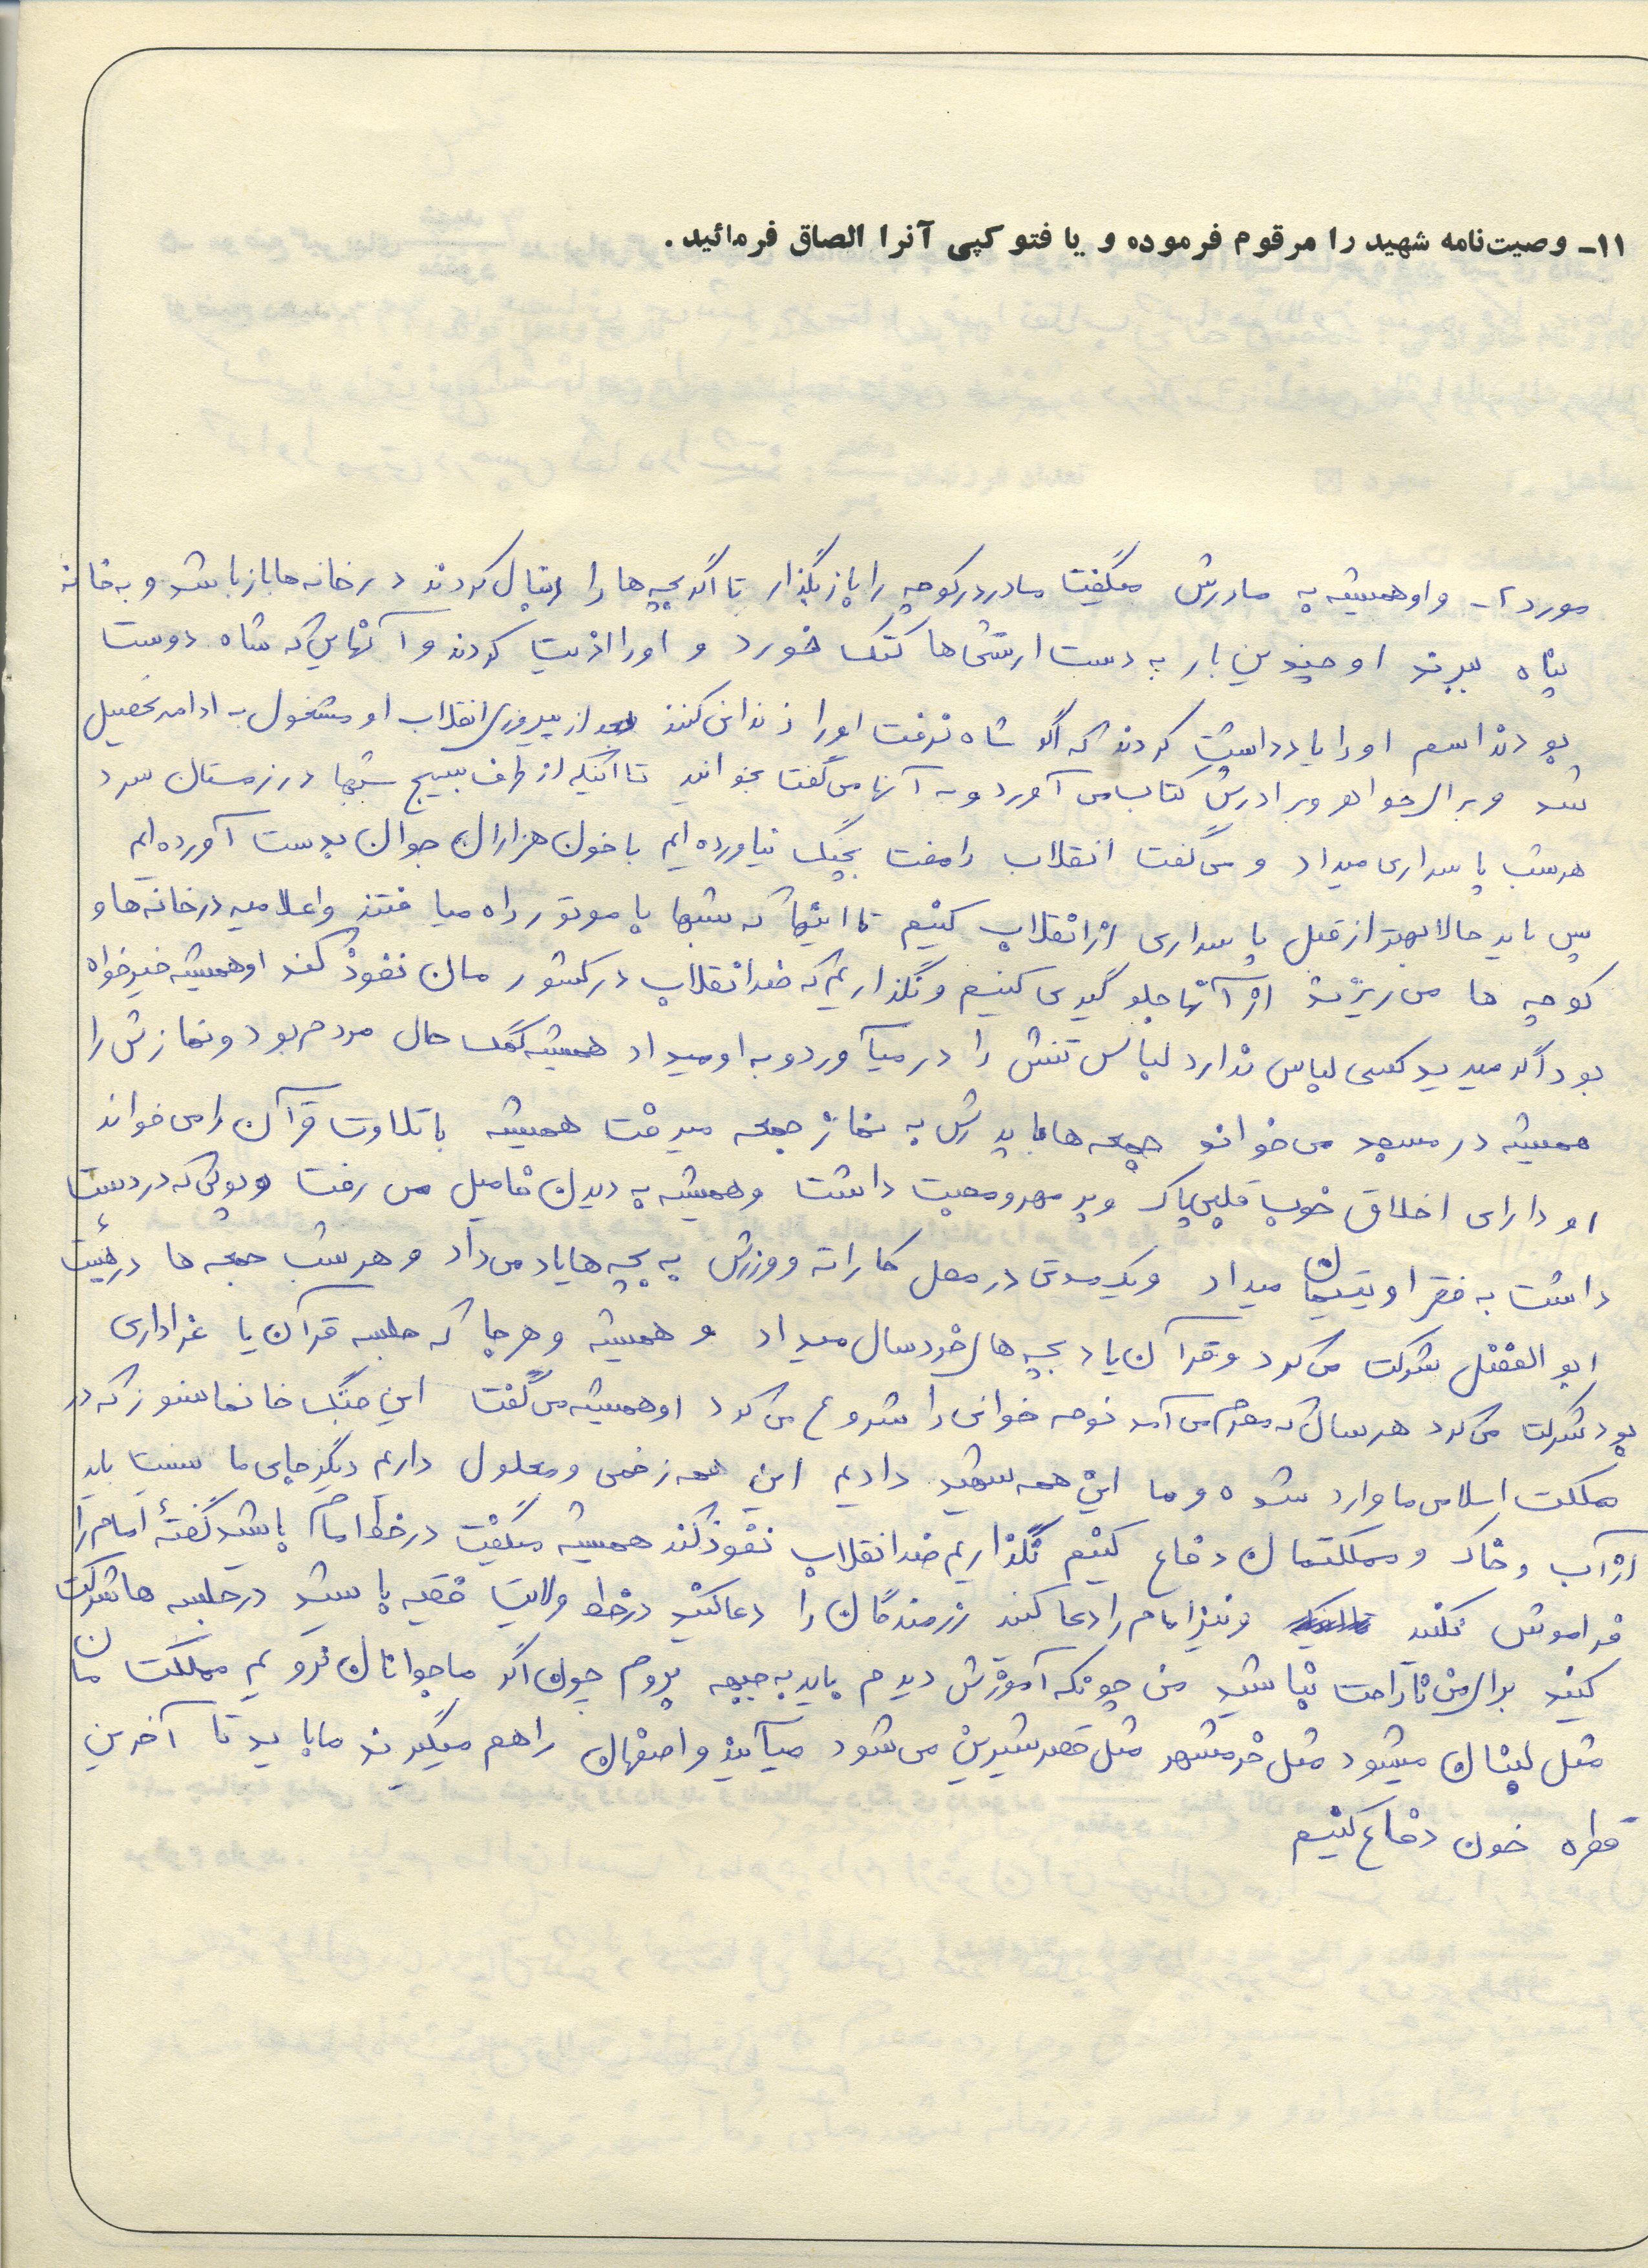 ۱۱- وصیت‌نامه شهید را مرقوم فرموده و یا فتوکپی آنرا الصاق فرمائید.
مورد ۲- و او همیشه به مادرش میگفت مادر در کوچه را باز بگذار تا اگر بچه ها را دنبال کردند در خانه ها باز باشد و به خانه
پناه ببرند او چندین بار به دست ارتشی ها کتک خورد و او را اذیت کردند و آنهایی که شاه دوست
بودند اسم او را یادداشت کردند که اگر شاه نرفت او را زندانی کنند بعد از پیروزی انقلاب او مشغول به ادامه تحصیل
شد و برای خواهر و برادرش کتاب می آورد و به آنها می گفت بخوانید تا اینکه از طرف بسیج شبها در زمستان سرد
هر شب پاسداری میداد و می گفت انقلاب را مفت بچنگ نیاورده ایم با خون هزاران جوان بدست آورده ایم
پس باید حالا بهتر از قبل پاسداری از انقلاب کنیم تا اینها که شبها با موتور راه میافتند و اعلامیه در خانه ها و
کوچه ها می ریزند از آنها جلوگیری کنیم و نگذاریم که ضد انقلاب در کشورمان نفوذ کند او همیشه خیرخواه
بود اگر میدید کسی لباس ندارد لباس تنش را در میآورد و به او میداد همیشه کمک حال مردم بود و نمازش را
همیشه در مسجد می خواند جمعه ها با پدرش به نماز جمعه میرفت همیشه با تلاوت قرآن را می خواند
او دارای اخلاق خوب قلبی پاک و پر مهر و محبت داشت و همیشه به دیدن فامیل می رفت و پولی که در دست
داشت به فقرا و یتیمان میداد و یک مدتی در محل کاراته و ورزش به بچه ها یاد می داد و هر شب جمعه ها در هیئت
ابوالفضل شرکت می کرد و قرآن یاد بچه های خردسال میداد و همیشه و هر جا که جلسه قرآن یا عزاداری
بود شرکت می کرد هر سال که محرم می آمد نوحه خوانی را شروع می کرد او همیشه می گفت این جنگ خانمانسوز که در
مملکت اسلامی ما وارد شده و ما این همه شهید دادیم این همه زخمی و معلول داریم دیگر جای ما نیست باید
از آب و خاک و مملکتمان دفاع کنیم نگذاریم ضد انقلاب نفوذ کند همیشه میگفت در خط امام باشید گفتهٔ امام را
فراموش نکنید و نیز امام را دعا کنید رزمندگان را دعا کنید در خط ولایت فقیه باشید در جلسه ها شرکت
کنید برای من ناراحت نباشید من چونکه آموزش دیدم باید به جبهه بروم چون اگر ما جوانان نرویم مملکت مان
مثل لبنان میشود مثل خرمشهر مثل قصرشیرین می شود میآیند و اصفهان را هم میگیرند ما باید تا آخرین
قطره خون دفاع کنیم